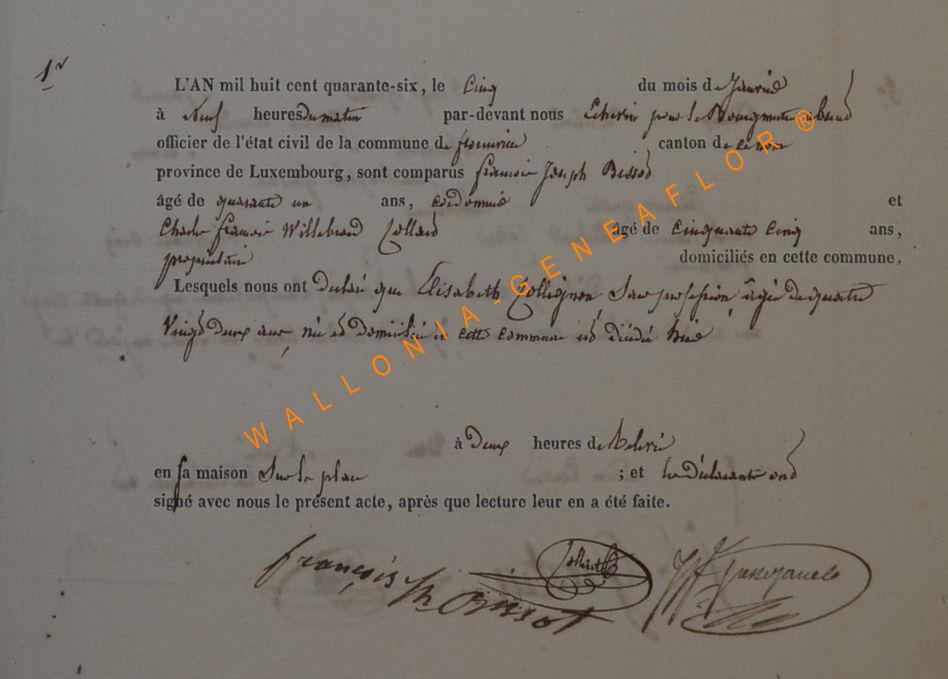 1r
L'AN mil huit cent quarante-six, le Cinq du mois de Janvier
à Neuf heures du matin par-devant nous Echevin pour le Bourgmestre absend
officier de l'état civil de la commune de canton de
province de Luxembourg, sont comparus francois Joseph Bissot
âgé de quarante un ans, cordonnié et
Charle francois Willebrord Collard âgé de Cinquante Cinq ans,
propriétaire domiciliés en cette commune,
Lesquels nous ont declaré que Elisabeth Collignon, Sans profession, âgée de quatre
Vingt deux ans, née et Domicilié en cette commune est décédé hier
à Deux heures de Relevé
en sa maison Sur la place ; et les déclarants ont
signé avec nous le présent acte, après que lecture leur en a été faite.
françois Bissot Collard
WALLONIA-GENEAFLOR®